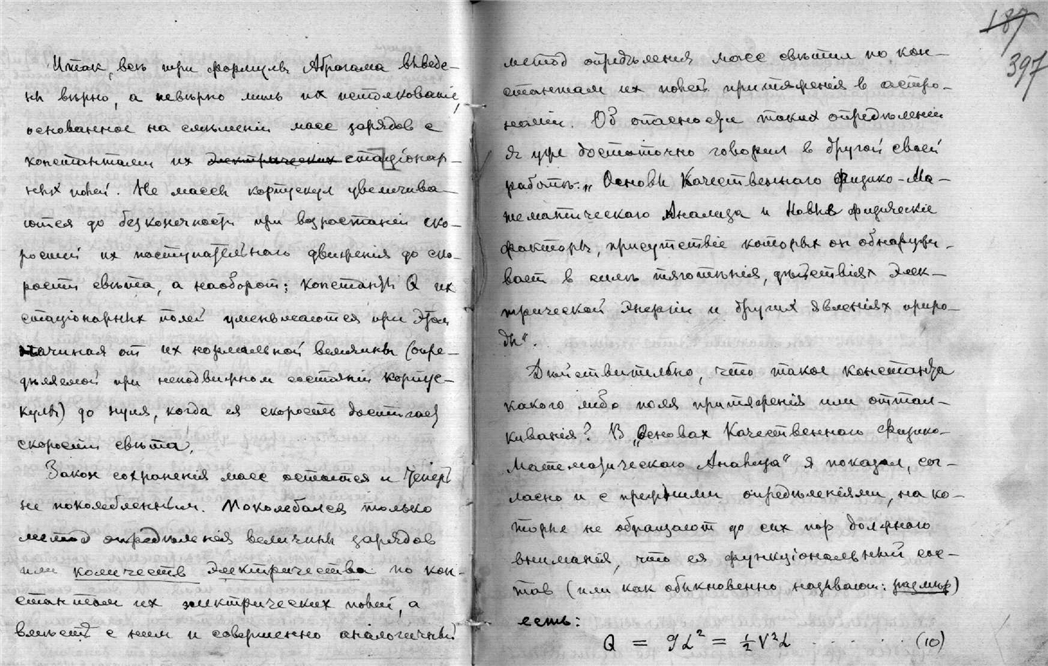 Итак, всѣ три формулы Абрагама выведе-
ны вѣрно, а невѣрно лишь их истолкованіе,
основанное на смѣшеніи масс зарядов с
константами их электрических стаціонар-
ных полей. Не массы корпускул увеличива-
ются до безконечности при возростаніи ско-
ростей их поступательнаго движенія до ско-
рости свѣта, а наоборот; константы Q их
стаціонарных полей уменьшаются при этом
начиная от их нормальной величины (опре-
дѣляемой при неподвижном состояніи корпус-
кулы) до нуля, когда ея скорость достигает
скорости свѣта.
Закон сохраненія масс остается и теперь
не поколебленным. Поколебался только
метод опредѣленія величины зарядов
или количеств электричества по кон-
стантам их электрических полей, а
вмѣстѣ с ним и совершенно аналогичный
187
397
метод опредѣленія масс свѣтил по кон-
стантам их полей притяженія в астро-
номіи. Об опасности таких опредѣленій
я уже достаточно говорил в другой своей
работѣ: „Основы Качественнаго Физико-Ма-
тематическаго Анализа и Новые физическіе
факторы, присутствіе которых он обнаружи-
вает в силѣ тяготѣнія, дѣйствіях элек-
трической энергіи и других явленіях приро-
ды“.
Дѣйствительно, что такое константа
какого либо поля притяженія или оттал-
киванія? В „Основах Качественнаго Физико-
Математическаго Анализа“ я показал, сог-
ласно и с прежними опредѣленіями, на ко-
торые не обращают до сих пор должнаго
вниманія, что ея функціональный сос-
тав (или как обыкновенно называют: размѣр)
есть:
Q = gL² = ½V²L . . . . . . (10)